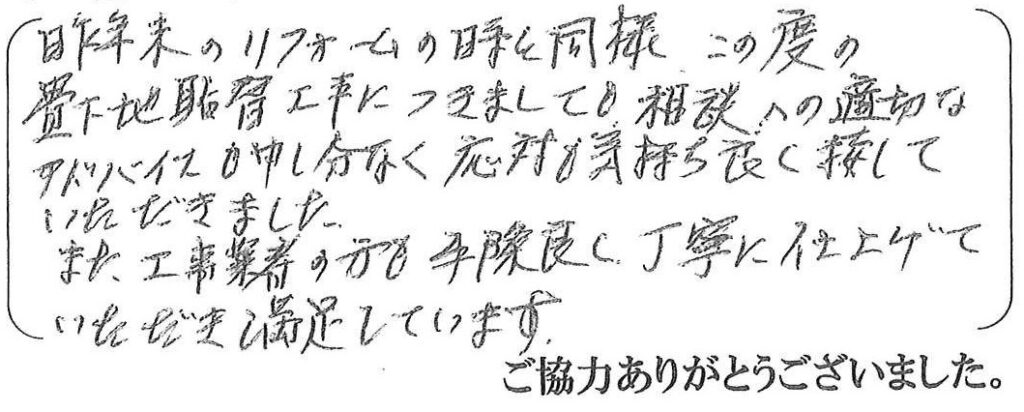 昨年末のリフォームの時と同様 この度の
畳下地貼替工事につきましても 相談への適切な
アドバイスも申し分なく 応対も気持ち良く接して
いただきました。
また、工事業者の方も手際良く、丁寧に仕上げて
いただき満足しています。
ご協力ありがとうございました。